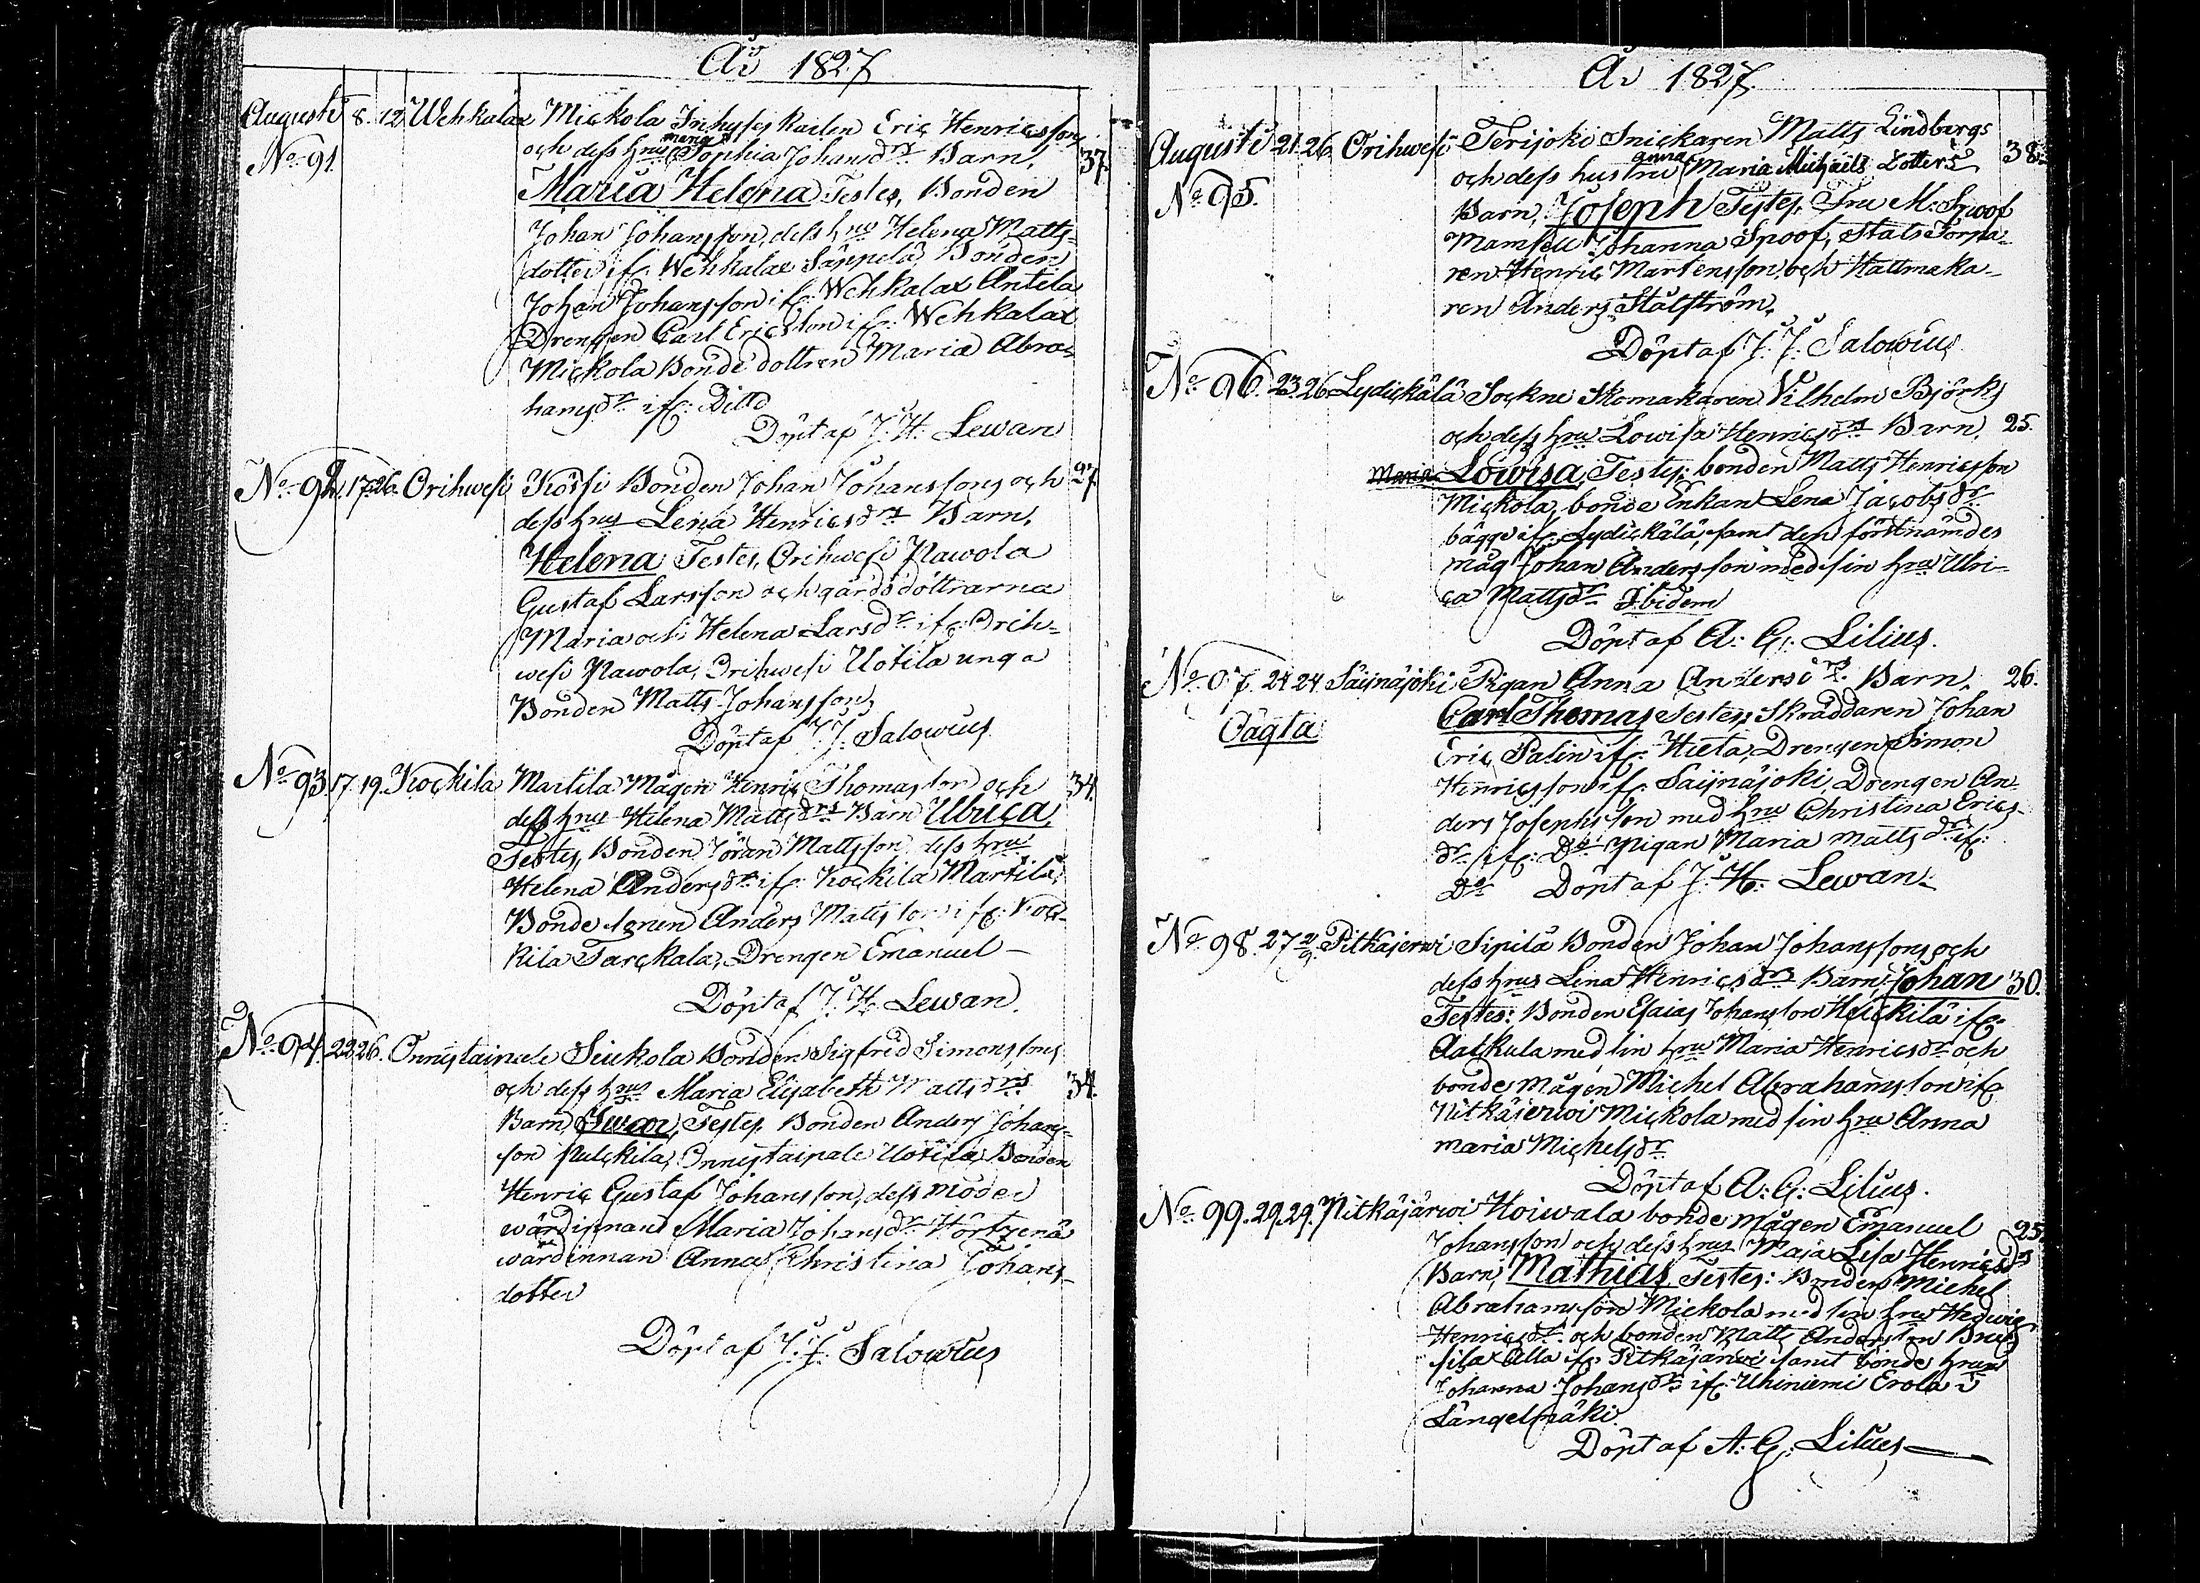 År 1827
Augusti 8. 12 Wehkalax Mickola Inhyses Karlen Eric Henricssons
och dess hrus Sophia Johansdrs Barn, 37.
No 91.
Maria Helena Testes, Bonden
Johan Johansson, dess hru Helena Matts-
dotter ifr: Wehkalax Bonden
Johan Johansson ifr: Wehkalax Antila
Drengen Carl Ericsson ifr: Wehkalax
Mickola Bonde dottren Maria Abra-
hamsdr ifr: Ditto
Döpt af J: H: Lewan
No 92. 17. 26. Orihwesi Kössi Bonden Johan Johanssons och 27.
dess hrus Lena Henricsdrs Barn,
Helena Testes, Orihwesi Pawola
Gustaf Larsson och gårdsdöttrarna
Maria och Helena Larsdr ifr: Orih-
wesi Pawola, Orihwesi Uotila unga
Bonden Matts Johansson
Döpt af J: J: Salowius
No 93. 17. 19. Kockila Martila Mågen Henric Thomasson och 34.
dess hrus Helena Mattsdrs Barn Ulrica,
Testes, Bonden Jöran Mattsson dess hru
Helena Andersdr ifr: Kockila Martila,
Bonde sonen Anders Mattsson ifr: Koc-
kila Tarckala, Drengen Emanuel –
Döpt af J: H: Lewan.
No 94. 22. 26. Onnistaipale Siukola Bonden Sigfred Simonssons
och dess hrus Maria Elisabeth Mattsdrs 34.
Barn, Iwar, Testes Bonden Anders Johans-
son Pulckila, Onnistaipale Uotila, Bonden
Henric Gustaf Johansson, dess moder
wärdinnan Maria Johansdr
wärdinnan Anna Christina Johans-
dotter
Döpt af J: J: Salowius
År 1827.
Augusti 21. 26. Orihwesi Terijoki Snickaren Matts Lindbergs 38.
och dess hustru anna Maria Michaels Dotters
No 95.
Barn, Joseph Testes, Fru M: Spoof
Mamsell Johanna Spoof, Stats Torpa-
ren Henric Mårtensson och Hattmaka-
ren Anders Stålström,
Döpt af J: J: Salowius
No 96. 23. 26. Lyдickälä Sockne Skomakaren Vilhelm Björks
och dess hru Lowisa Henricsdrs Barn, 25.
Maria Lowisa, Testes: bonden Matts Henricsson
Mickola, bonde Enkan Lena Jacobsdr
bägge ifr: Lydickälä, samt den förstnämdes
måg Johan Andersson med sin hru Ulri-
ca Mattsdr Ibidem
Döpt af A: G: Lilius.
No 97. 24 24 Säijnäjoki Pigan Anna Andersdrs. Barn, 26.
Oägta
Carl Thomas Testes: Skräddaren Johan
Eric Palin ifr: Hieta, Drengen Simon
Henricsson ifr: Säijnäjoki, Drengen An-
ders Josephsson med hru Christina Erics-
dr ifr: Do Pigan Maria Mattsdr ifr:
Do Döpt af J: H: Lewan.
No 98. 27 2/9. Pitkäjerwi Sipilä Bonden Johan Johanssons och
dess hrus Lena Henricsdrs Barn, Johan 30.
Testes: Bonden Esaias Johansson Heickilä ifr:
med sin hru Maria Henricsdr och
bonde Mågen Michel Abrahamsson ifr
Pitkäjerwi Mickola med sin hru Anna
maria Michelsdr
Döpt af A: G: Lilius.
No 99. 29. 29. Pitkäjärwi Hoiwala bonde mågen Emanuel 25.
Johansson och dess hrus Maja Lisa Henricsdrs
Barn, Mathias Testes: Bonden Michel
Abrahamsson Mickola med sin hru Hedwig
Henricsdr och bonden Matts Andersson
Alla ifr Pitkäjärwi samt bonde hrun
Johanna Johansdr ifr: Uhiniemi Erola i
Längelmäki.
Döpt af A: G: Lilius